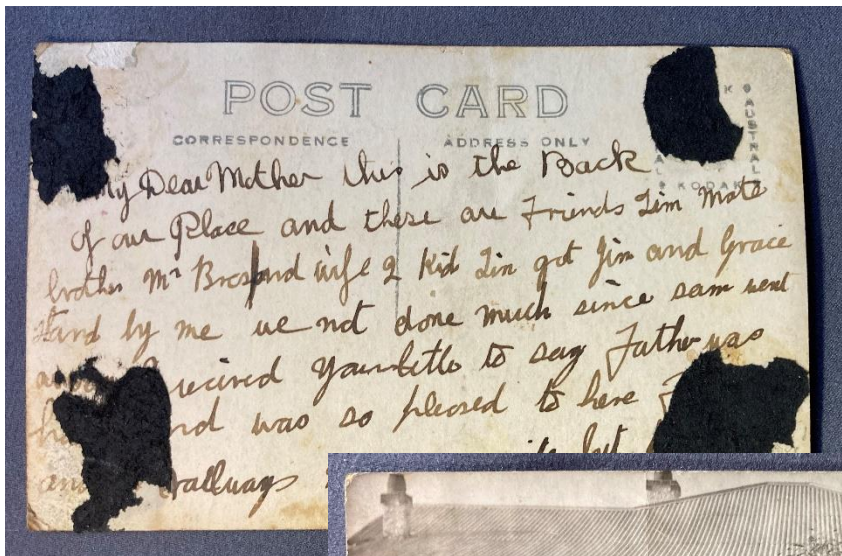 POST CARD
CORRESPONDENCE
ADDRESS ONLY
AUSTRAL
KODAK
My Dear Mother this is the Back
of our Place and these are Friends Jim Mate
brother Mr and wife 2 Kid Jim got Jim and Grace
stand by me we not done much since sam went
recived your letter to say Father was
was so pleased to here
but